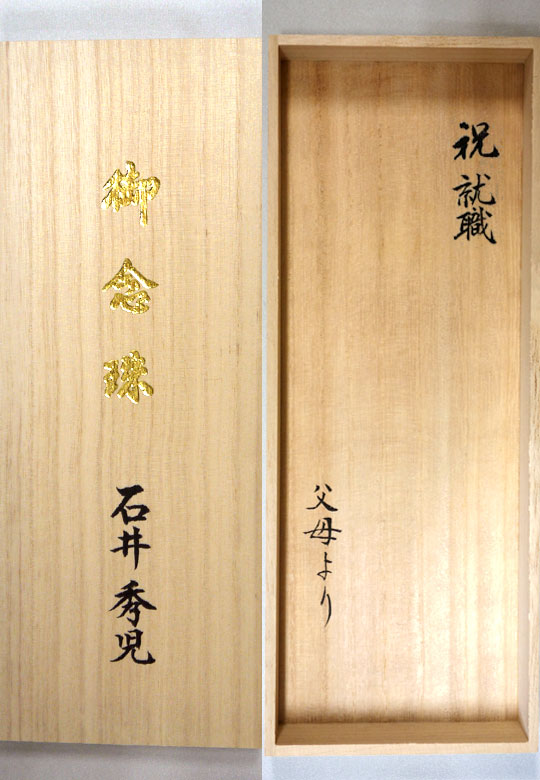 御念珠
石井秀児
祝 就職
父母より